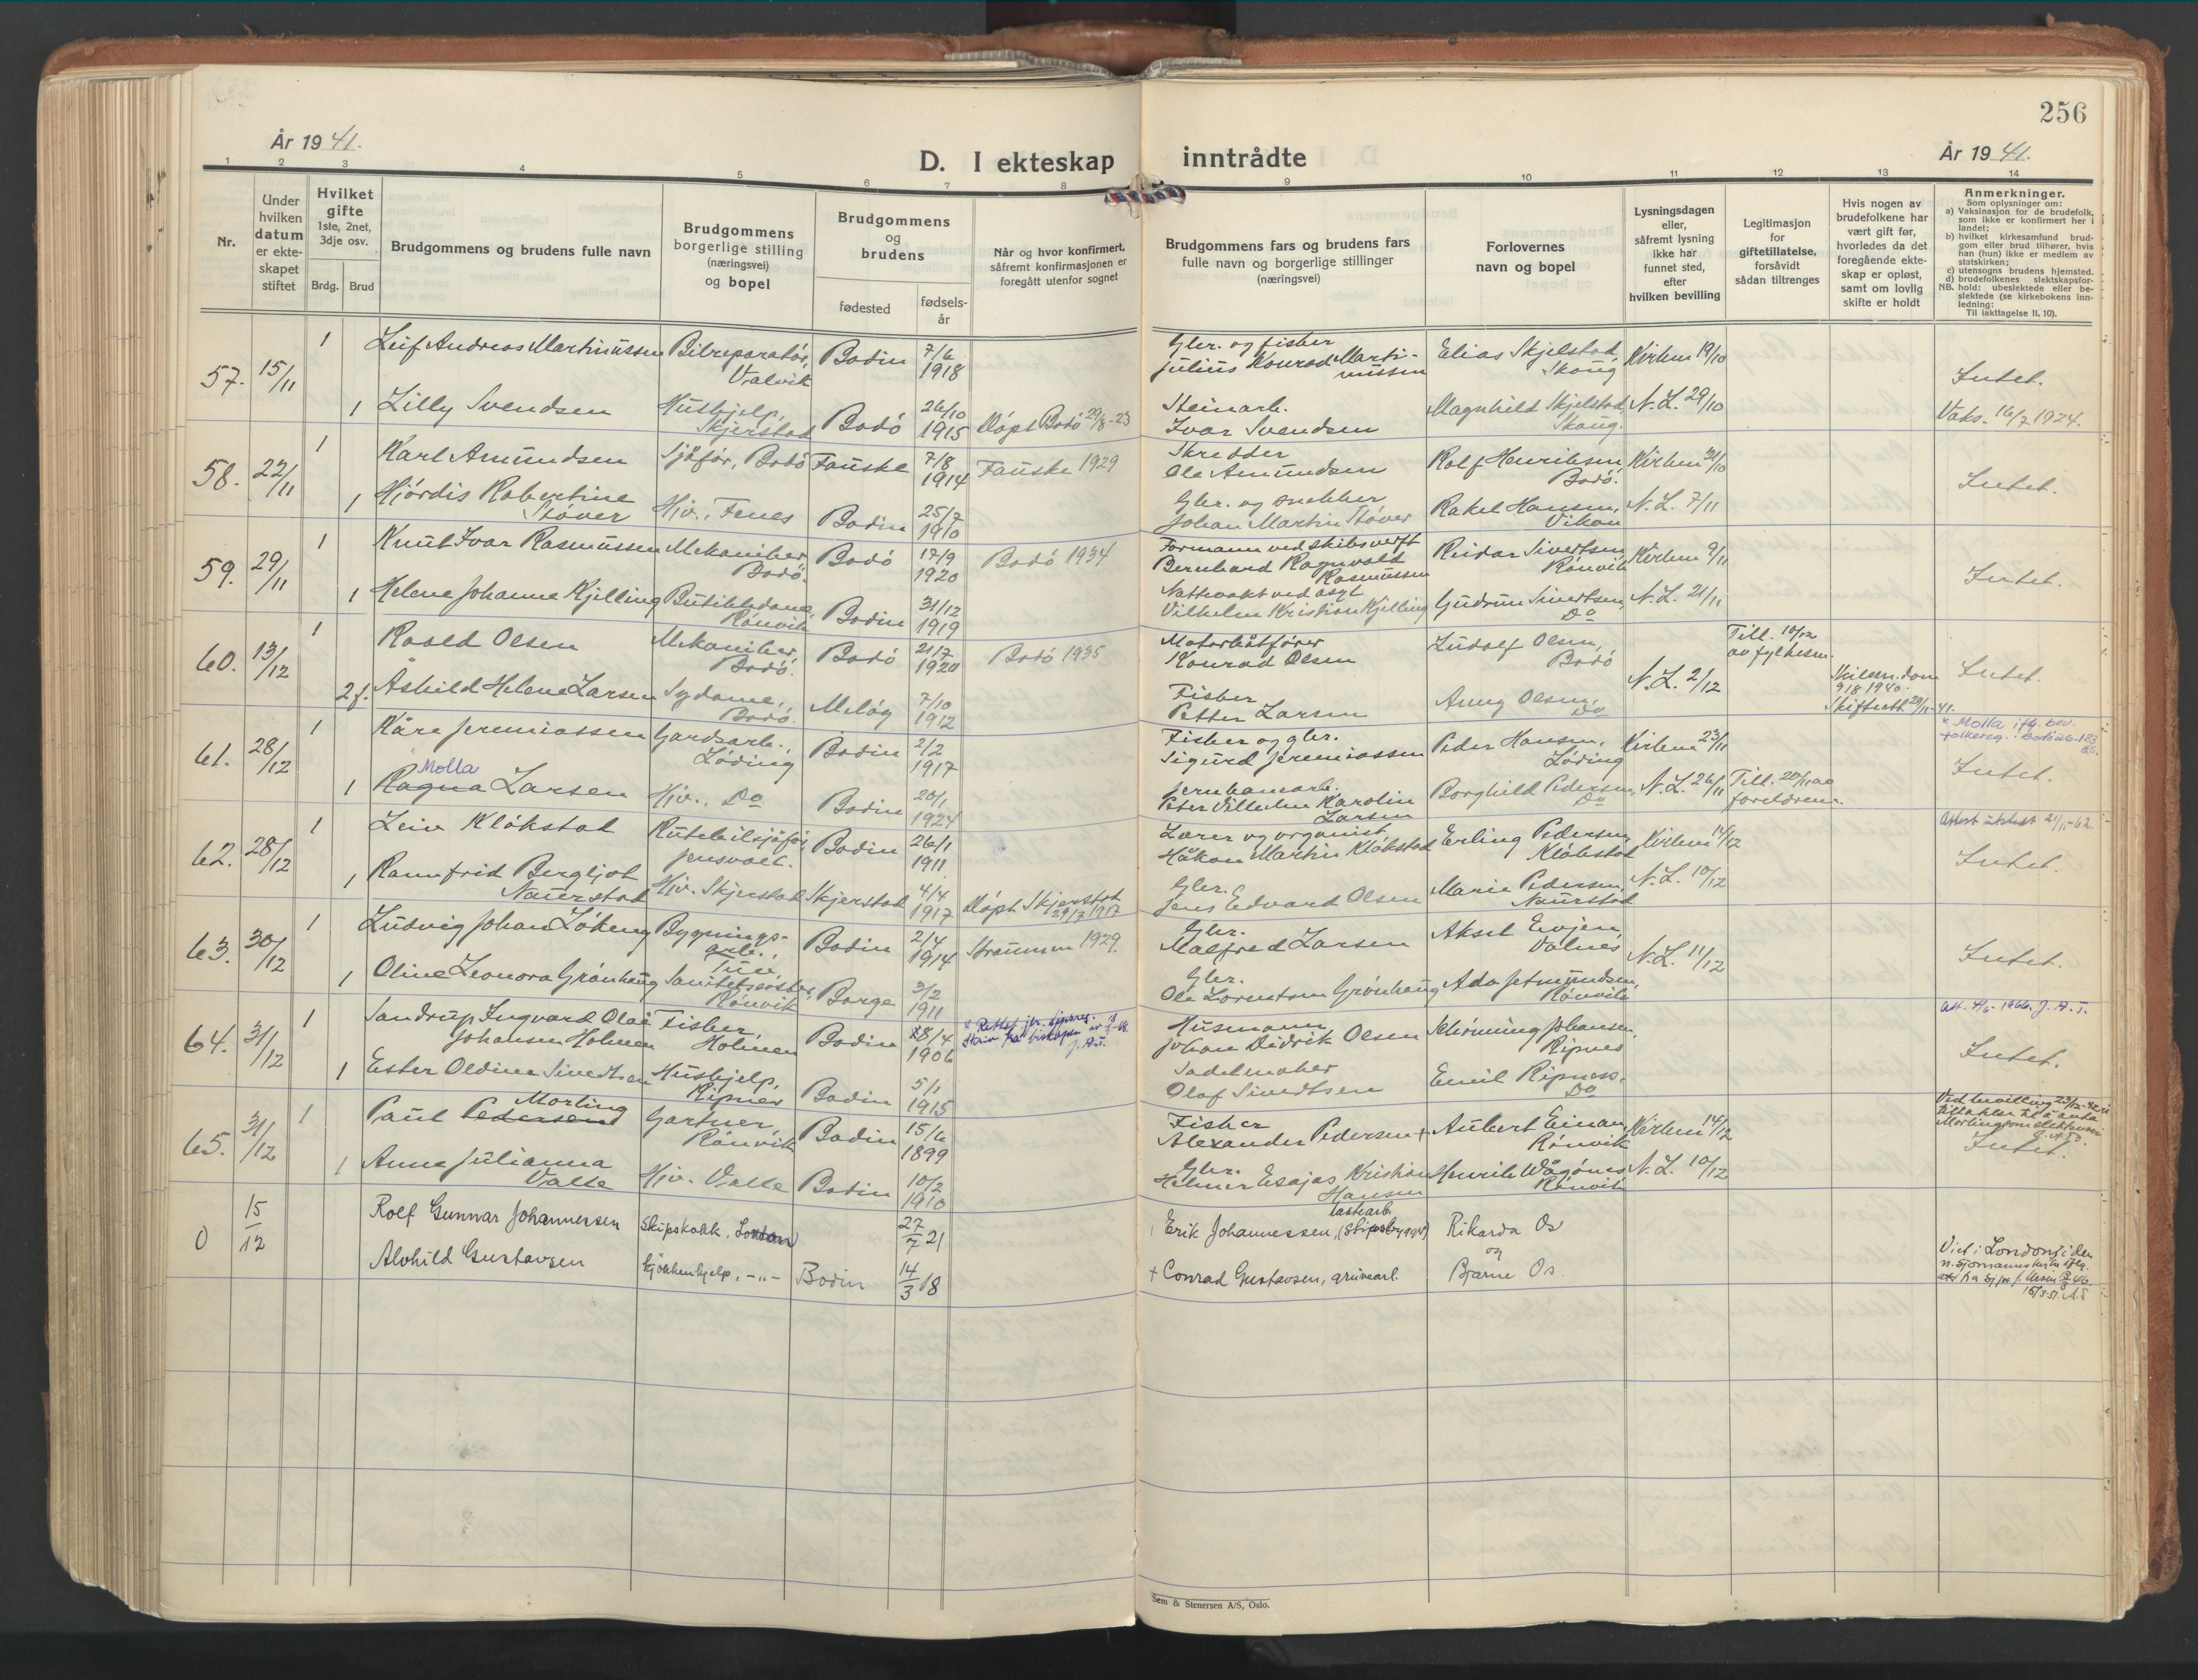 256
År 1941.
D. I ekteskap inntrådte
År 1941.
1 2 3 4 5 6 7 8 9 10 11 12 13 14
Nr.
Under hvilken datum er ekteskapet stiftet
Hvilket gifte 1ste, 2net, 3dje osv.
Brdg. Brud
Brudgommens og brudens fulle navn
Brudgommens borgerlige stilling (næringsvei) og bopel
Brudgommens og brudens
fødested
fødsels-år
Når og hvor konfirmert, såfremt konfirmasjonen er foregått utenfor sognet
Brudgommens fars og brudens fars fulle navn og borgerlige stillinger (næringsvei)
Forlovernes navn og bopel
Lysningsdagen eller, såfremt lysning ikke har funnet sted, efter hvilken bevilling
Legitimasjon for giftetillatelse, forsåvidt sådan tiltrenges
Hvis nogen av brudefolkene har vært gift før, hvorledes da det foregående ekteskap er opløst, samt om lovlig skifte er holdt
Anmerkninger.
Som oplysninger om:
a) Vaksinasjon for de brudefolk, som ikke er konfirmert her i landet;
b) hvilket kirkesamfund brudgom eller brud tilhører, hvis han (hun) ikke er medlem av statskirken;
c) utensogns brudens hjemsted.
d) brudefolkenes slektskapsforhold: ubeslektede eller beslektede (se kirkebokens innledning:
NB.
Til iakttagelse II. 10).
57. 15/11 1 Leif Andreas Martinussen Bilreparatør, Valvik Bodin 7/6 1918 Gbr. og fisker Julius Konrad Martinussen Elias Skjelstad, Skaug Kirken 19/10 Intet.
1 Lilly Svendsen Hushjelp, Skjerstad Bodó 26/10 1915 Dópt Bodó 29/8-23 Steinarb. Ivar Svendsen Magnhild Skjelstad, Skaug. N.L. 29/10 Vaks. 16/7 1924.
58. 22/11 1 Karl Amundsen Sjåfór, Bodó Fauske 7/8 1914 Fauske 1929 Skredder Ole Amundsen Rolf Henriksen, Bodó. Kirken 31/10 Intet.
1 Hjórdis Robertine Stóver Hjv., Fenes Bodin 25/7 1910 Gbr. og snekker Johan Martin Stóver Rakel Hansen, Vikan N.L. 7/11
59. 29/11 1 Knut Ivar Rasmussen Mekaniker, Bodó. Bodó 17/9 1920 Bodó 1934 Formann ved skibsverft Bernhard Ragnvald Rasmussen Reidar Sivertsen, Rónvik Kirken 9/11 Intet.
1 Helene Johanne Kjelling Butikkdame, Rónvik Bodin 31/12 1919 Nattevakt ved asyl Vilhelm Kristian Kjelling Gudrun Sivertsen, Do N.L. 21/11
60. 13/12 1 Roald Olsen Mekaniker, Bodó. Bodó 21/7 1920 Bodó 1935 Motorbåtfører Konrad Olsen Ludolf Olsen, Bodó Till. 10/12 av fylkesm. Intet.
2 f. Åshild Helene Larsen Sydame, Bodó. Melóy 7/10 1912 Fisker Petter Larsen Anny Olsen, Do N.L. 2/12 Skilsm.dom 9/8 1940. Skifteatt 29/11-41.
61. 28/12 1 Kåre Jeremiassen Gardsarb., Lóding Bodin 2/2 1917 Fisker og gbr. Sigurd Jeremiassen Peder Hansen, Lóding Kirken 23/11 * Molla ifg. bev. folkereg. Intet.
1 Molla Ragna Larsen Hjv., Do Bodin 20/1 1924 Jernbanearb. Peter Vilhelm Karolin Larsen Borghild Pedersen, Do N.L. 26/11 Till. 20/11 av foreldrene
62. 28/12 1 Leiv Klókstad Rutebilsjåfór, Jensvoll. Bodin 26/1 1911. Lærer og organist Håkon Martin Klókstad Erling Pedersen, Klókstad Kirken 14/12 Attest utstedt 21/11-62. Intet.
1 Rannfrid Bergljot Naurstad Hjv. Skjerstad Skjerstad 4/4 1917 Dópt Skjerstad 29/7 1917 Gbr. Jens Edvard Olsen Marie Pedersen, Naurstad N.L. 10/12
63. 30/12 1 Ludvig Johan Lókeng Bygningsarb., Tuv, Bodin 2/4 1914 Straumen 1929. Gbr. Malfred Larsen Aksel Evjen, Valnes N.L. 11/12 Intet.
1 Oline Leonora Grónhaug Sanitetssóster, Rónvik Borge 3/2 1911 Gbr. Ole Lorentsen Grønhaug Ada Setmundsen, Rónvik
64. 31/12 1 Sandrup Ingvard Olai Johansen Holmen Fisker, Holmen Bodin 28/4 1906 Husmann Johan Didrik Olsen Schónning Johansen, Ripnes Att. 4/6-1966. J.A.T. Intet.
1 Ester Oldine Sivertsen Hushjelp, Ripnes Bodin 5/1 1915 Sadelmaker Olaf Sivertsen Emil Ripnes. Do
65. 31/12 1 Paul Pedersen Morling Gartner, Rónvik Bodin 15/6 1899 Fisker Alexander Pedersen + Aubert Einan, Rónvik Kirken 14/12 Intet.
1 Anna Julianna Valle Hjv. Valle Bodin 10/2 1910 Gbr. Helmer Esajas Kristian Hansen Henrik Vågónes Rónvik N.L. 10/12
0 15/12 Rolf Gunnar Johannessen Skipskokk, London 27/7 21 Erik Johannessen, Rikarda Os og
Alvhild Gustavsen Kjøkkenhjelp, -"- Bodin 14/3 18 + Conrad Gustavsen, gruvearb. Bjarne Os
Viet i London
Sem & Stenersen A/S, Oslo.